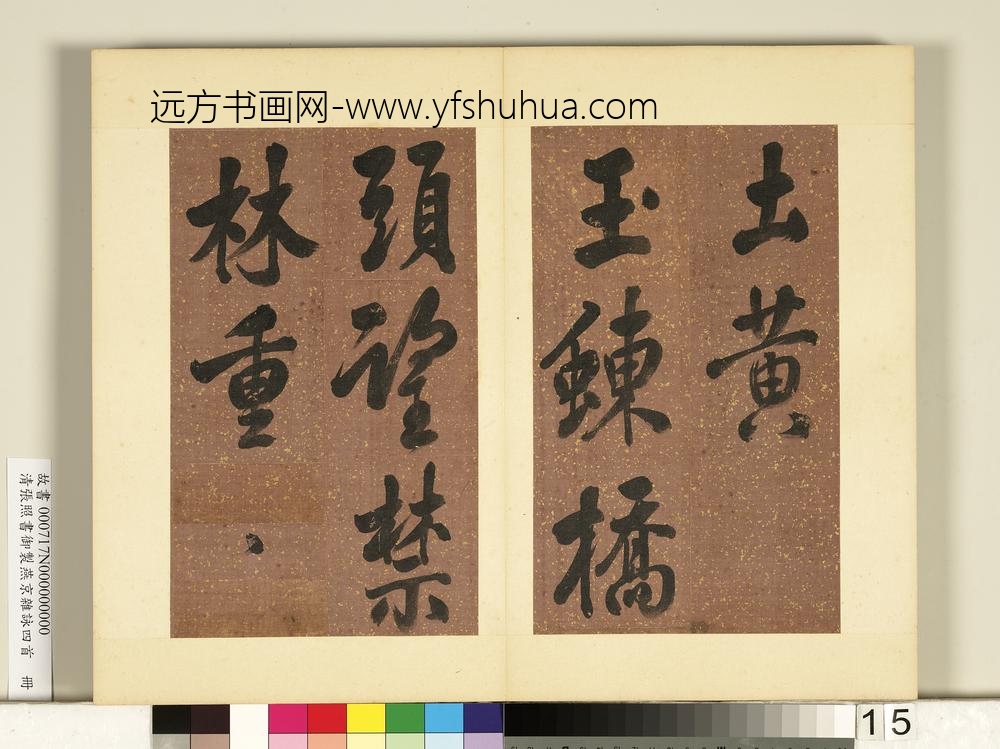 远方书画网-www.yfshuhua.com
土黄
玉鍊橋
頭望禁
林重
故書 000717N000000000
清張照書御製燕京雜詠四首 冊
15